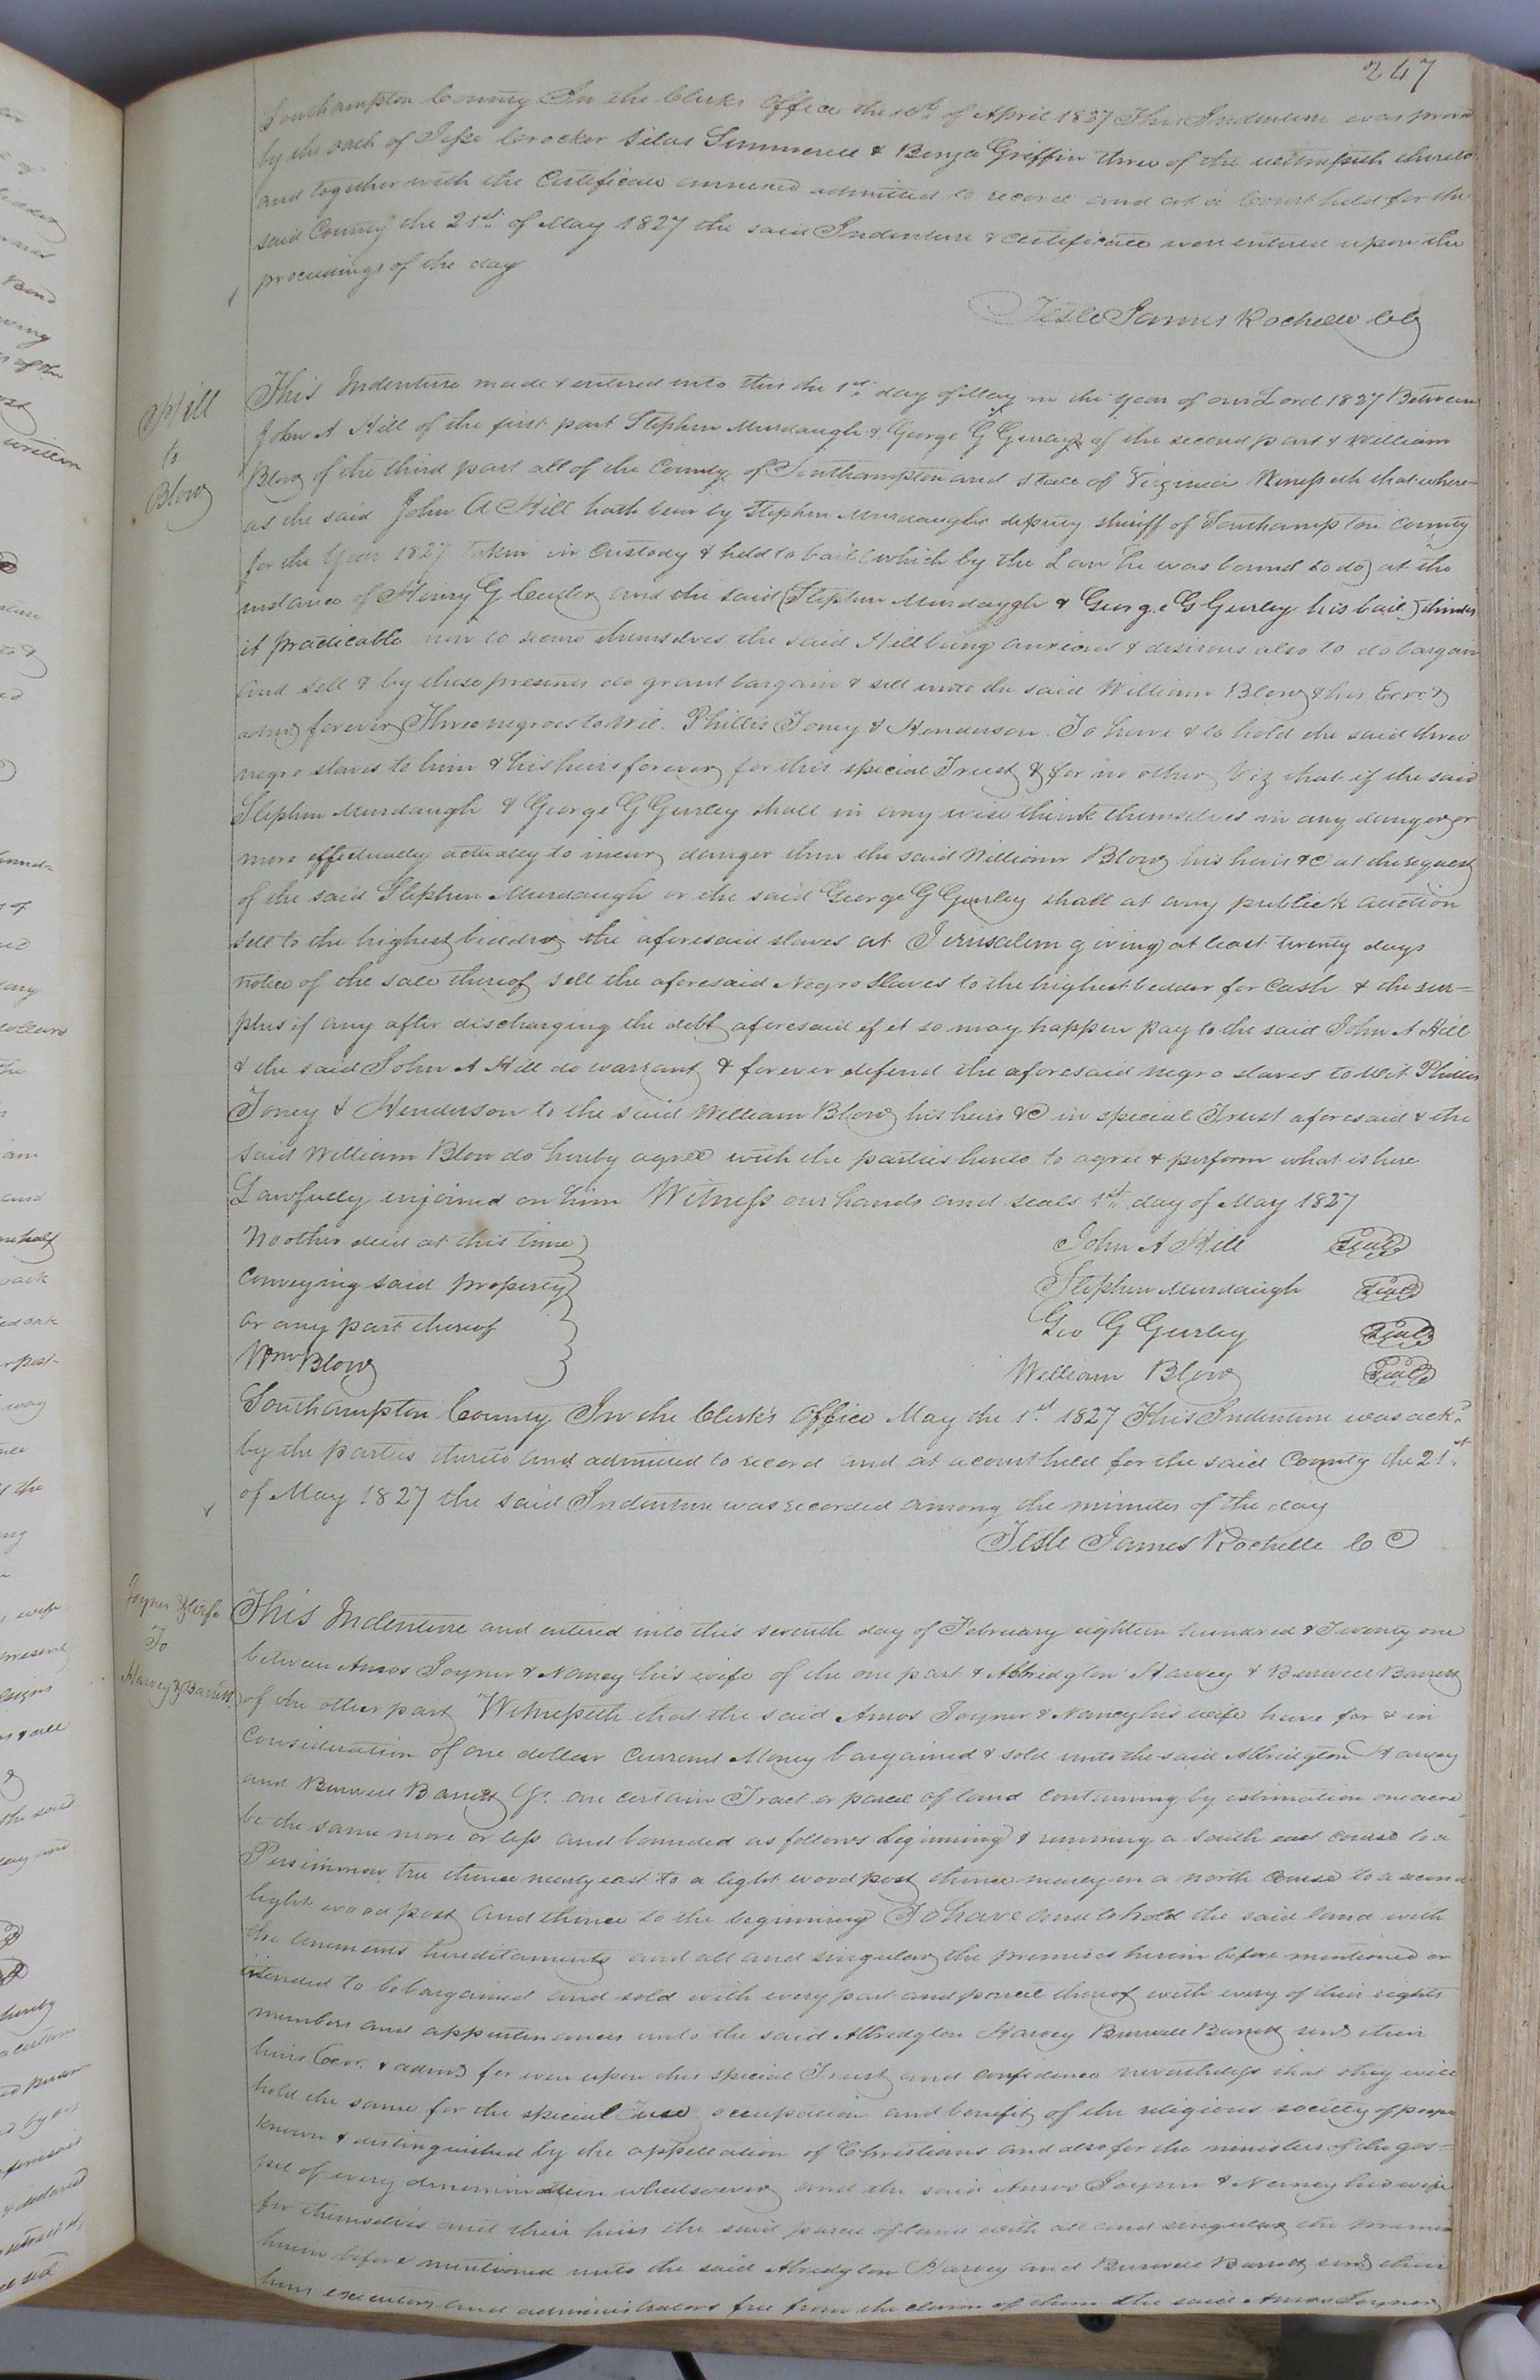 247
Southampton County In the Clerks Office the 10th of April 1827 This Indenture was proved
by the oath of Jesse Crocker Silas Summerell & Benja Griffin three of the witnesseth thereto
and together with the Certificate annexed admitted to record and at a Court held for the
said County the 21st of May 1827 the said Indenture & certificate were entered upon the
proceedings of the day
Teste James Rochelle CC
Hill
to
Blow
This Indenture made & entered into this the 1st day of May in the year of our Lord 1827 Between
John A Hill of the first part Stephen Murdaugh & George G Gurley of the second part & William
Blow of the third part all of the County of Southampton and State of Virginia Witnesseth that where=
as the said John A Hill hath been by Stephen Murdaugh deputy sheriff of Southampton County
for the Year 1827 taken in Custody & held to bail (which by the Law he was bound to do) at the
instance of Henry G Cutler and the said (Stephen Murdaygh & George G Gurley his bail) thinks
it practicable now to secure themselves the said Hill being anxious & desirous also to do bargain
and sell & by these presents do grant bargain & sell unto the said William Blow & his Exrs. &
adms forever Three negroes to Wit. Phillis Toney & Henderson To have & to hold the said three
negro slaves to him & his heirs forever for this special Trust & for no other Viz that if the said
Stephen Murdaugh & George G Gurley shall in any wise think themselves in any danger or
more effectually actually to incur danger then the said William Blow his heirs &c at the request
of the said Stephen Murdaugh or the said George G Gurley shall at any publick auction
sell to the highest bidder the aforesaid slaves at Jerusalem giving at least twenty days
notice of the sale thereof sell the aforesaid Negro Slaves to the highest bedder for Cash & the sur=
plus if any after discharging the debt aforesaid if it so may happen pay to the said John A Hill
& the said John A Hill do warrant & forever defend the aforesaid negro slaves to Wit Phillis
Toney & Henderson to the said William Blow his heirs &c in special Trust aforesaid & the
said William Blow do hereby agree with the parties hereto to agree & perform what is here
Lawfully enjoined on him Witness our hands and seals 1st day of May 1827
No other deed at this time
John A Hill Seal
Conveying said property
Stephen Murdaugh Seal
or any part thereof
Geo G Gurley Seal
Wm. Blow
William Blow Seal
Southampton County In the Clerk's Office May the 1st 1827 This Indenture was ackd
by the parties thereto and admitted to record and at a court held for the said County the 21st
of May 1827 the said Indenture was recorded among the minutes of the day
Teste James Rochelle CC
Joyner & wife
To
Harvey & Barrett
This Indenture and entered into this seventh day of February eighteen hundred & Twenty one
between Amos Joyner & Nancy his wife of the one part & Albridgton Harvey & Burwell Barrett
of the other part Witnesseth that the said Amos Joyner & Nancy his wife have for & in
Consideration of one dollar Currant Money bargained & sold unto the said Albridgton Harvey
and Burwell Barrett Jr. one certain Tract or parcel of land containing by estimation one acre
be the same more or less and bounded as follows beginning & running a south east course to a
Persimmon tree thence nearly east to a light wood post thence nearly on a north Course to a second
light wood post and thence to the beginning To have and to hold the said land with
the tenements hereditaments and all and singular the premises herein before mentioned or
intended to be bargained and sold with every part and parcel thereof with every of their rights
members and appurtenances unto the said Albridgton Harvey Burwell Barrett and their
heirs Exrs. & adms for ever upon this special Trust and confidence nevertheless that they will
hold the same for the special use occupation and benefit of the religious society of people
known & distinguished by the appellation of Christians and also for the ministers of the gos=
pel of every denomination whatsoever and the said Amos Joyner & Nancy his wife
for themselves and their heirs the said parcel of land with all and singular the premises
herein before mentioned unto the said Albridgton Harvey and Burwell Barrett and their
heirs executors and administrators free from the claim of them the said Amos Joyner